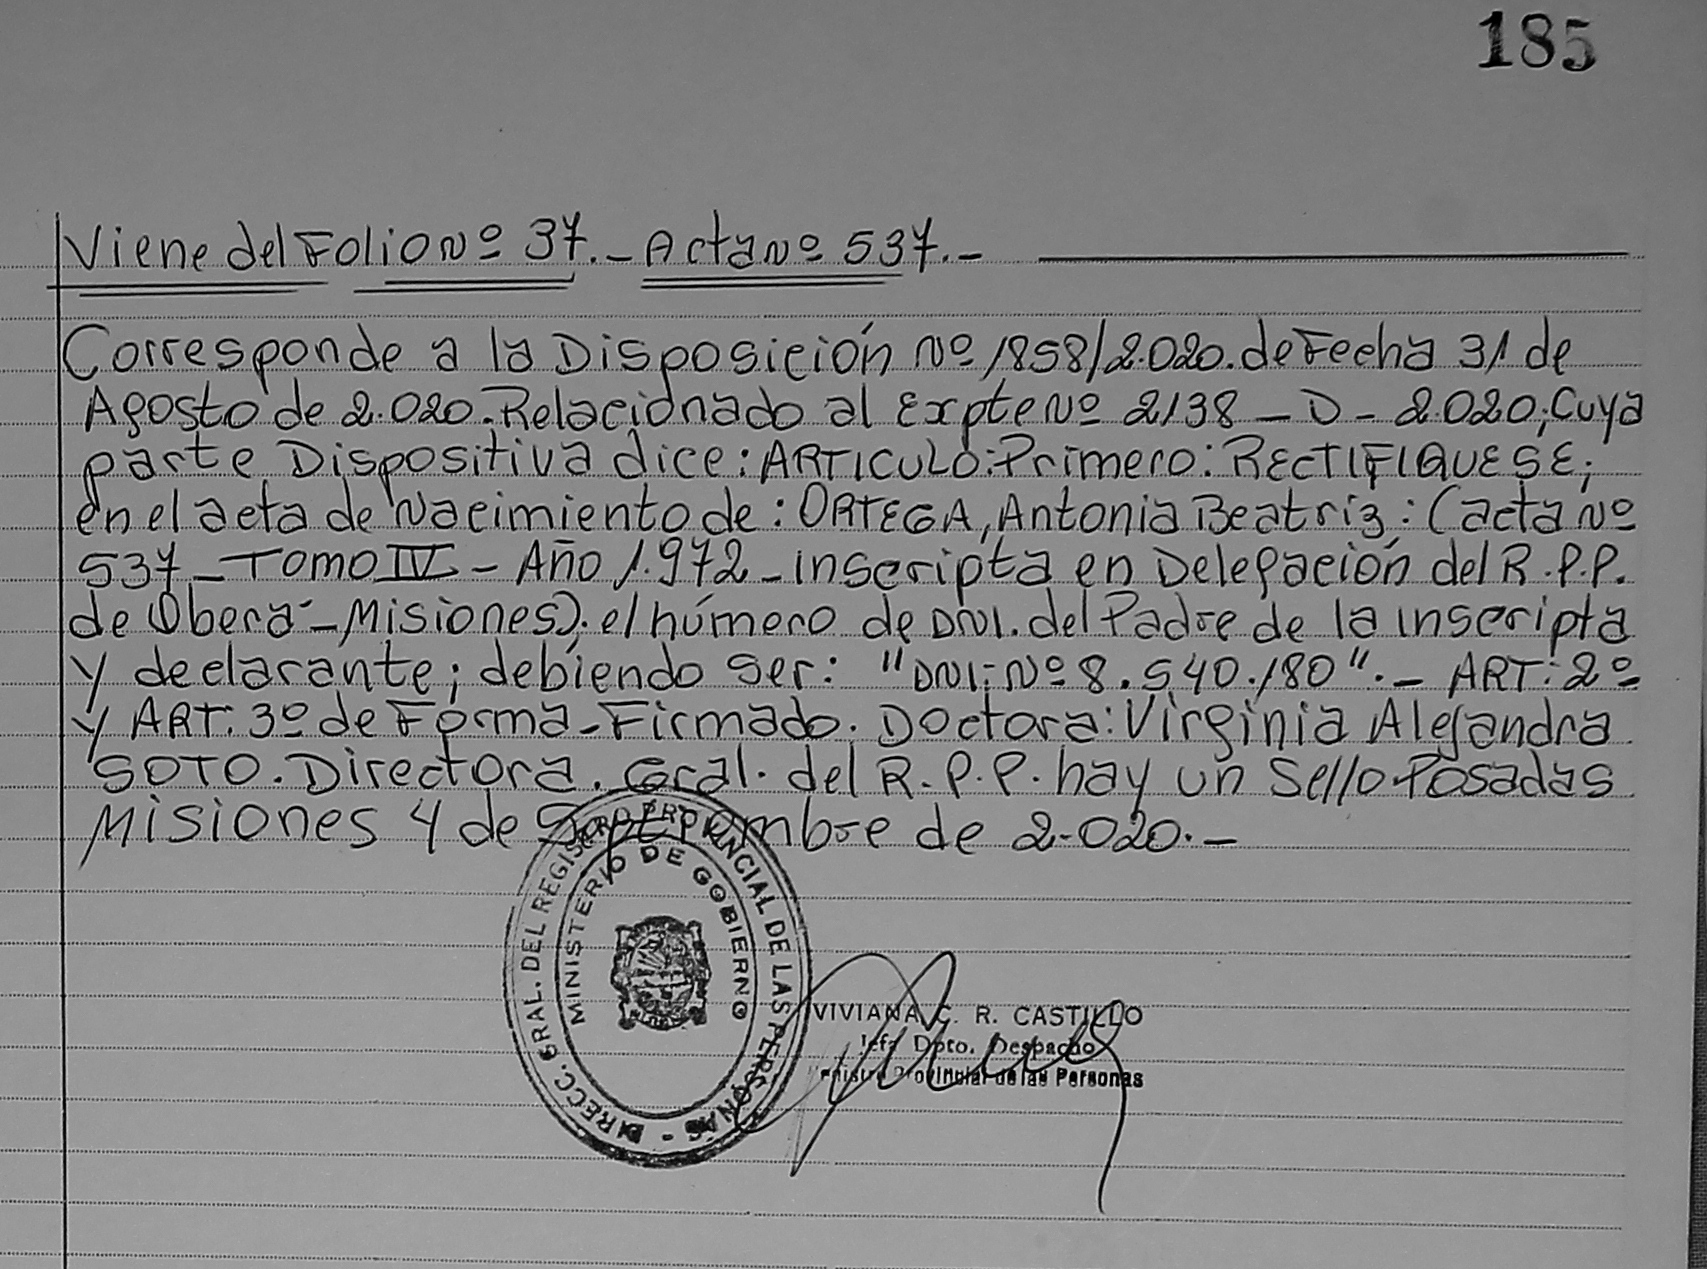 185
Viene del Folio Nº 37.- Acta Nº 537.-
Corresponde a la Disposición Nº 1858/2.020. de Fecha 31 de
Agosto de 2.020. Relacionado al Expte Nº 2138 - D - 2.020; Cuya
parte Dispositiva dice: ARTICULO: Primero: RECTIFIQUESE;
en el acta de Nacimiento de: ORTEGA, Antonia Beatriz: (acta Nº
537 - Tomo IV - Año 1.972 - inscripta en Delegación del R.P.P.
de Oberá - Misiones). el número de DNI. del Padre de la inscripta
y declarante; debiendo ser: "DNI: Nº 8.540.180". - ART: 2º
y ART. 3º de Forma - Firmado. Doctora: Virginia Alejandra
SOTO. Directora. Gral. del R.P.P. hay un Sello. Posadas
Misiones 4 de Septiembre de 2.020. -
DIRECC. GRAL. DEL REGISTRO PROVINCIAL DE LAS PERSONAS -
MINISTERIO DE GOBIERNO
VIVIANA C. R. CASTILLO
Jefa Dpto. Despacho
Registro Provincial de las Personas